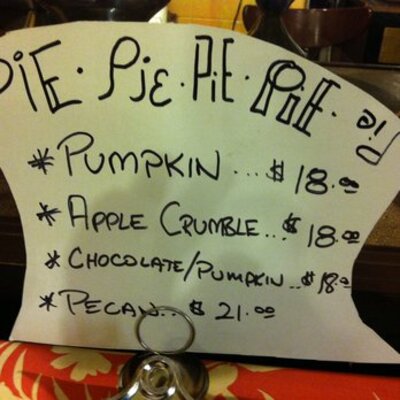 PiE · Pie · PiE · PiE · Pie
* PUMPKIN ... $ 18.00
* APPLE CRUMBLE... $ 18.00
* CHOCOLATE/PUMPKIN .. $ 18.00
* PECAN... $ 21.00